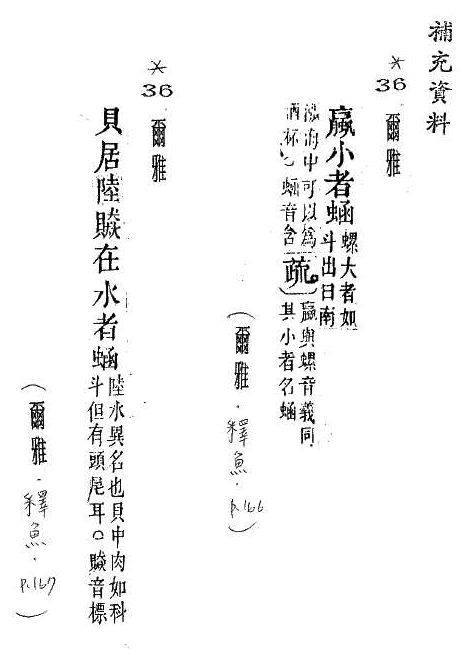 補充資料
*36 爾雅
蠃小者蜬
螺大者如
斗出日南
漲海中可以為
酒杯 蜬音含
疏
蠃與螺音義同
其小者名蜬
(爾雅.釋魚.p.166)
*36 爾雅
貝居陸贆在水者蜬
陸水異名也貝中肉如科
斗但有頭尾耳○贆音標
(爾雅.釋魚.p.167)